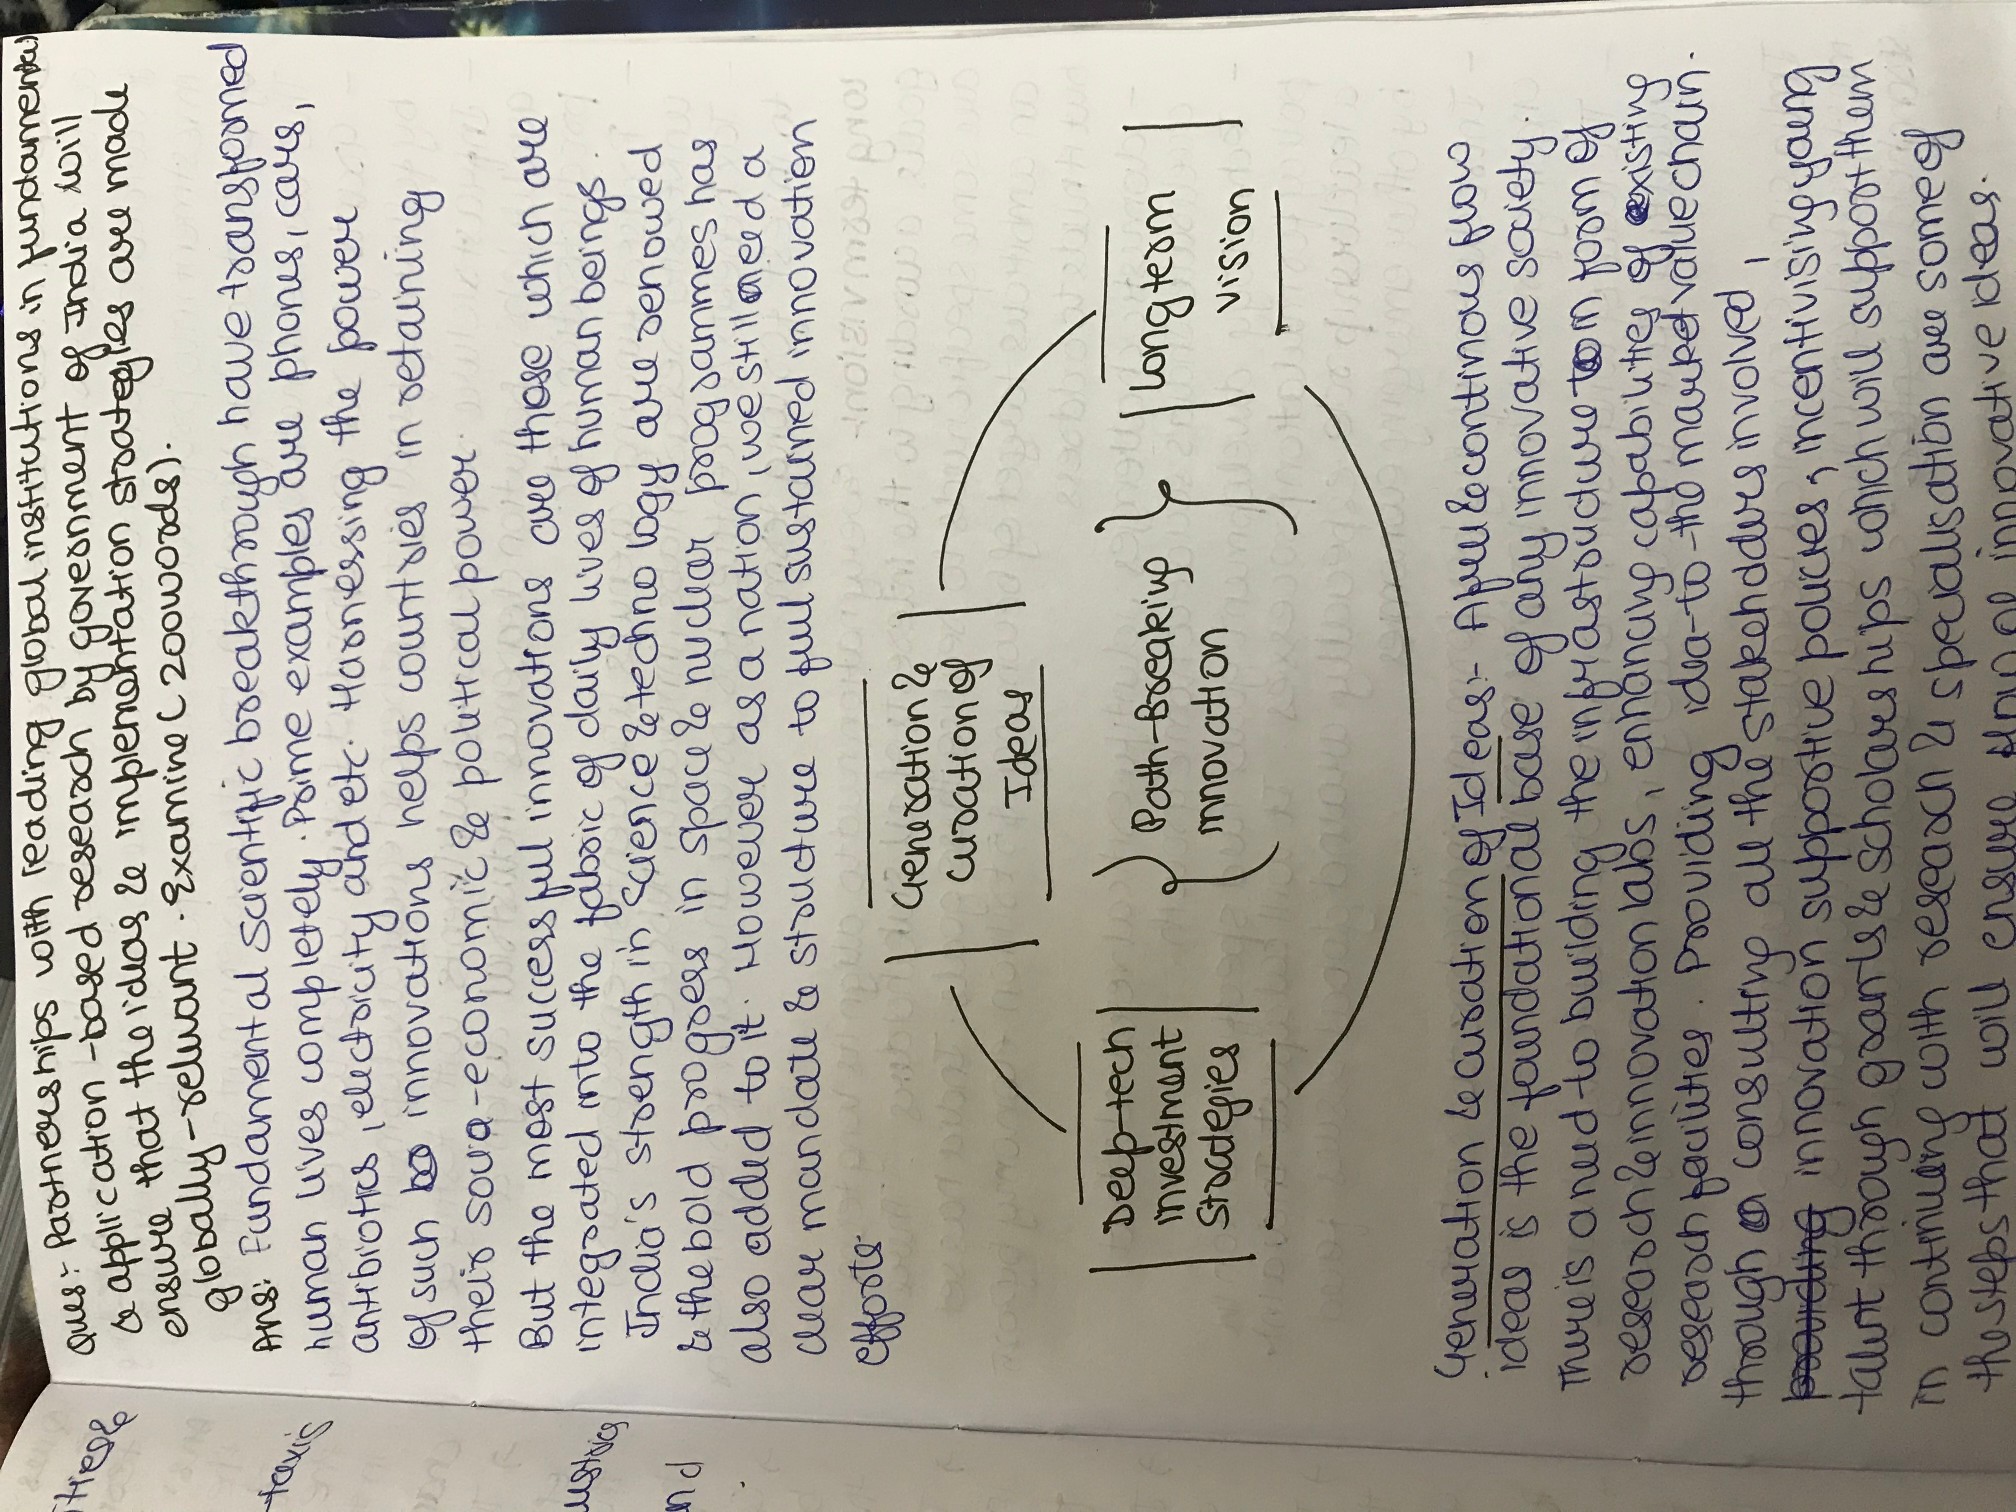 Ques:- Partnerships with reading global institutions in fundamental
& application-based research by government of India will
ensure that the ideas & implementation strategies are made
globally-relevant. Examine (200words).
Ans: Fundamental scientific breakthrough have transformed
human lives completely. Prime examples are phones, cars,
antibiotics, electricity and etc. Harnessing the power
of such innovations helps countries in retaining
their socia-economic & political power.
But the most successful innovations are those which are
integrated into the fabric of daily lives of human beings.
India's strength in science & technology are renowed
& the bold progress in space & nuclear programmes has
also added to it. However as a nation, we still need a
clear mandate & structure to fuel sustained innovation
efforts.
Generation &
Curation of
Ideas
Deep-tech
investment
Strategies
Path-Breaking
innovation
Long term
vision
Generation & curation of Ideas:- A free & continous flow
ideas is the foundational base of any innovative society.
There is a need to building the infrastructure in form of
research & innovation labs, enhancing capabilities of existing
research facilities. Providing idea-to-the market value chain.
through consulting all the stakehdders involved,
providing innovation supportive policies, incentivising young
talent through grants & scholarships which will support them
in continuing with research & specialisation are some of
the steps that will ensure flow of innovative ideas.
tiese
taxis
using
nd